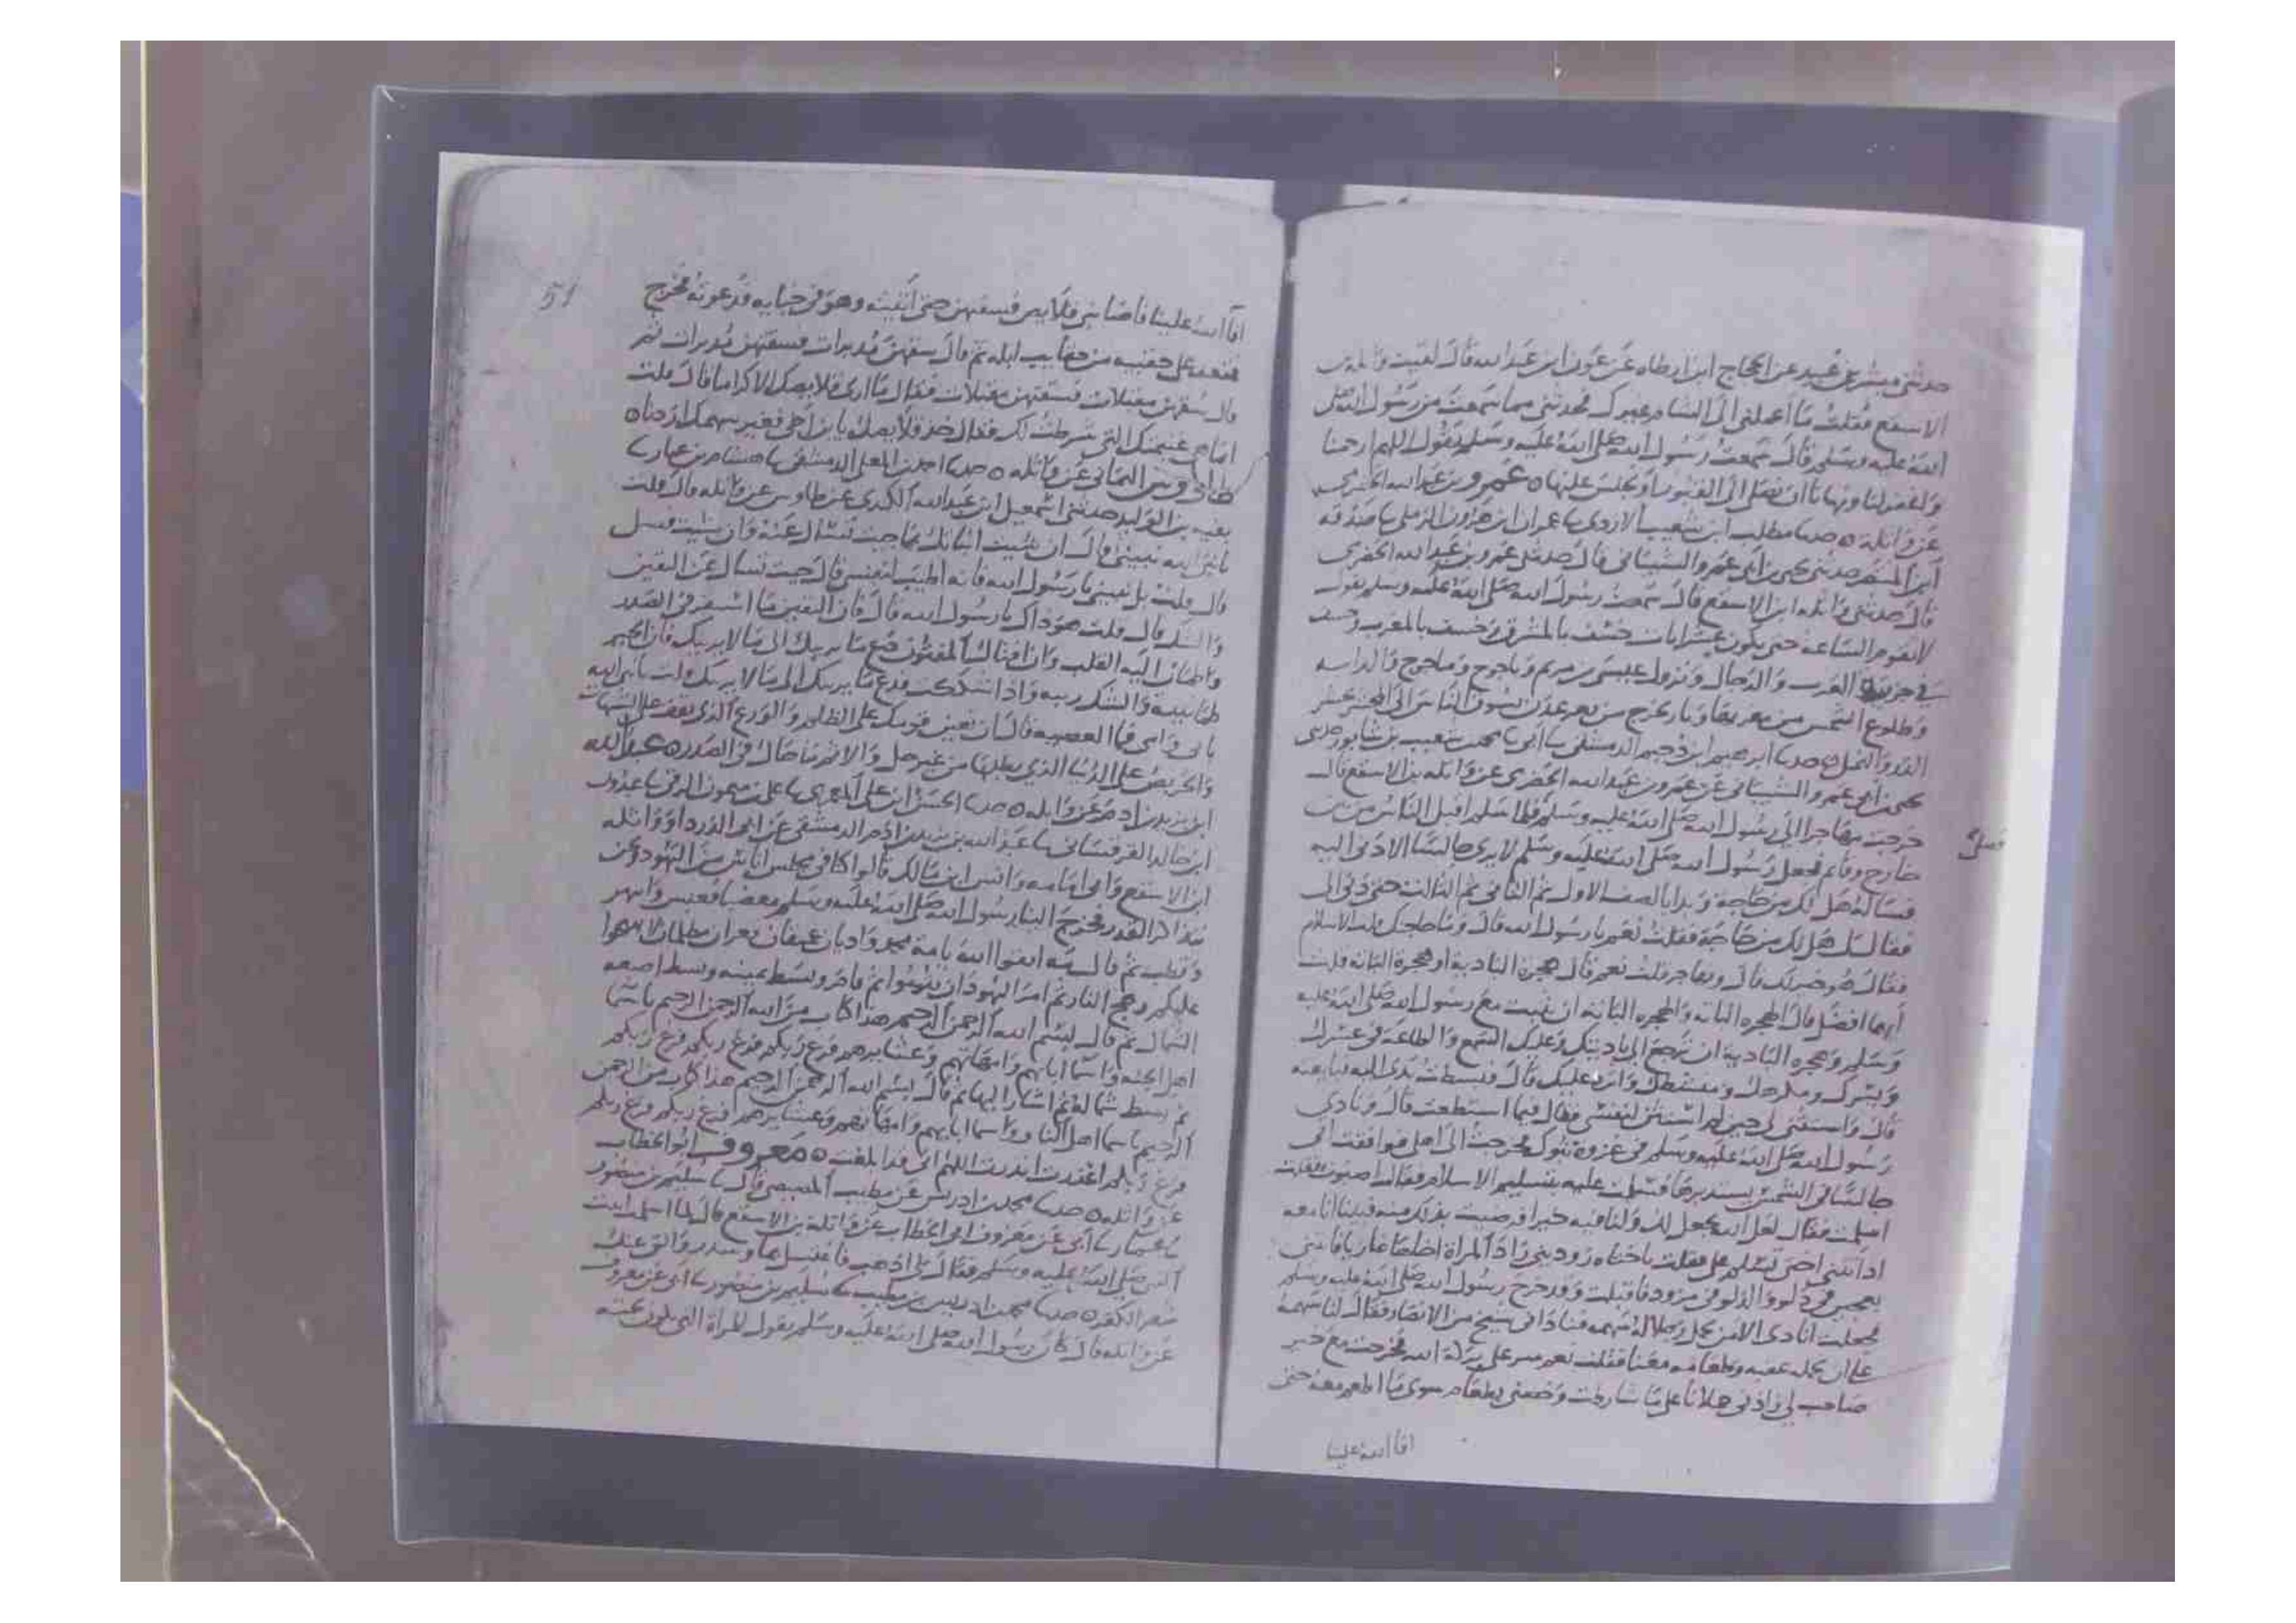 حدثني مبشر بن عبيد عن الحجاج ابن ارطاه عن عون ابن عبد الله قال لقيت واثلة بن
الاسقع فقلت ما اعملني الى الشام غيرك فحدثني مما سمعت من رسول الله صلى
الله عليه وسلم قال سمعت رسول الله صلى الله عليه وسلم يقول اللهم ارحمنا
واغفر لنا ونهانا ان نصلي الى القبور او نجلس عليها ه عمرو بن عبد الله الحضرمي
عن واثلة ه حدثنا مطلب ابن شعيب الازدي نا عمران ابن هارون الرملي نا صدقه
ابن المنتصر حدثني يحيى بن ابي عمرو الشيباني قال حدثني عمرو بن عبد الله الحضرمي
قال حدثني واثله ابن الاسقع قال سمعت رسول الله صلى الله عليه وسلم يقول
لا تقوم الساعه حتى يكون عشر ايات خسف بالمشرق وخسف بالمغرب وخسف
في جزيرة العرب والدجال ونزول عيسى بن مريم وياجوج وماجوج والدابه
وطلوع الشمس من مغربها ونار تخرج من قعر عدن تسوق الناس الى المحشر تحشر
الذر والنمل ه حدثنا ابراهيم ابن دحيم الدمشقي نا ابي نا محمد بن شعيب بن شابور حدثني
يحيى بن ابي عمرو الشيباني عن عمرو بن عبد الله الحضرمي عن واثله بن الاسقع قال
خرجت مهاجرا الى رسول الله صلى الله عليه وسلم فلما سلم اقبل الناس من بين
خارج وقائم فجعل رسول الله صلى الله عليه وسلم لا يرى جالسا الا دنى اليه
فساله هل لك من حاجة وبدا بالصف الاول ثم الثاني ثم الثالث حتى دنى الي
فقال هل لك من حاجة فقلت نعم يا رسول الله قال وما حاجتك قلت الاسلام
فقال هو خير لك قال وتهاجر قلت نعم قال هجرة البادية او هجرة الباتة قلت
ايهما افضل قال الهجره الباته والهجره الباتة ان تثبت مع رسول الله صلى الله عليه
وسلم وهجره البادية ان ترجع الى باديتك وعليك السمع والطاعة في عسرك
ويسرك ومكرهك ومنشطك واثرة عليك قال فبسطت يدي اليه فبايعته
قال واستثنى لي حين لم استثن لنفسي فقال فيما استطعت قال ونادى
رسول الله صلى الله عليه وسلم في غزوة تبوك فخرجت الى اهلي فوافقت ابي
جالسا في الشمس يستدبرها فسلمت عليه بتسليم الاسلام فقال اصبوت فقلت
اسلمت فقال لعل الله يجعل لك ولنا فيه خيرا فرضيت بذلك منه فبينا انا معه
اذ اتتني اختي تسلم علي فقلت يا اختاه زوديني زاد المراة اخاها غازيا فاتتني
بعجين في دلو والدلو في مزود فاقبلت وقد خرج رسول الله صلى الله عليه وسلم
فجعلت انادي الا من يحمل رجلا له سهمه فناداني شيخ من الانصار فقال لنا سهمه
على ان نحمله عقبه وطعامه معنا فقلت نعم سر على بركة الله فخرجت مع خير
صاحب لي زادني حملانا على ما شارطت وخصني بطعام سوى ما اطعم معه حتى
افا الله علينا
فصلى
51
افا الله علينا فاصابني قلايص فسقتهن حتى اتيته وهو في خبايه فدعوته فخرج
فقعد على حقيبه من حقايب ابله ثم قال سقهن مدبرات فسقتهن مدبرات ثم
قال سقهن مقبلات فسقتهن مقبلات فقال ما ارى قلايصك الا كراما قال قلت
انما هي غنيمتك التي شرطت لك فقال خذ قلايصك يا ابن اخي فغير سهمك اردنا ه
طاوس اليماني عن واثله ه حدثنا احمد بن المعلى الدمشقي نا هشام بن عمار نا
بقيه بن الوليد حدثني اسمعيل ابن عبد الله الكندي عن طاوس عن واثله قال قلت
يا نبي الله نبيني قال ان شيت انباتك بما جيت تسال عنه وان شيت فسل
قال قلت بل نبيني يا رسول الله فانه اطيب لنفسي قال جيت تسال عن اليقين
والشك قال قلت هو ذاك يا رسول الله قال فان اليقين ما استقر في الصدر
واطمان اليه القلب وان افتاك المفتون دع ما يريبك الى ما لا يريبك فان الخير
طمانينه والشك ريبه واذا شككت فدع ما يريبك الى ما لا يريبك قلت يا نبي الله
بابي وامي فما العصبيه قال ان تعين قومك على الظلم والورع الذي يقف على الشبهات
والحريص على الدنيا الذي يطلبها من غير حل والاثم ما حاك في الصدر ه عبد الله
ابن يزيد بن ادم عن واثله ه حدثنا الحسن ابن علي المعمري نا علي بن ميمون الرقي نا
ابن خالد القرقساني نا عبد الله بن يزيد بن ادم الدمشقي عن ابي الدرداء وواثله
ابن الاسقع وابي امامه وانس ابن مالك قالوا كنا في مجلس اناس من اليهود ونحن
نتذاكر القدر فخرج الينا رسول الله صلى الله عليه وسلم مغضبا فعبس وانتهر
وقطب ثم قال مه اتقوا الله يا امة محمد واديان عميقان قعران مظلمان لا تهيجوا
عليكم وهج النار ثم امر اليهود ان يقوموا ثم قام وبسط يمينه وبسط اصبعه
الشمال ثم قال بسم الله الرحمن الرحيم هذا كتاب من الله الرحمن الرحيم باسما
اهل الجنه واسما ابايهم وامهاتهم وعشايرهم فرغ ربكم فرغ ربكم فرغ ربكم
ثم بسط شماله ثم اشار اليها ثم قال بسم الله الرحمن الرحيم هذا كتاب من الرحمن
الرحيم باسما اهل النار واسما ابايهم وامهاتهم وعشايرهم فرغ ربكم فرغ ربكم
فرغ ربكم اعذرت انذرت اللهم اني قد ابلغت ه معروف ابو الخطاب
عن واثله ه حدثنا محمد بن ادريس بن مطيب المصيصي قال نا سليم بن منصور
بن عمار نا ابي عن معروف ابي الخطاب عن واثلة بن الاسقع قال لما اسلمت اتيت
النبي صلى الله عليه وسلم فقال لي اذهب فاغتسل بما وسدر والق عنك
شعر الكفر ه حدثنا محمد بن ادريس بن مطيب نا سليم بن منصور نا ابي عن معروف
عن واثله قال كان رسول الله صلى الله عليه وسلم يقول للمراة التي